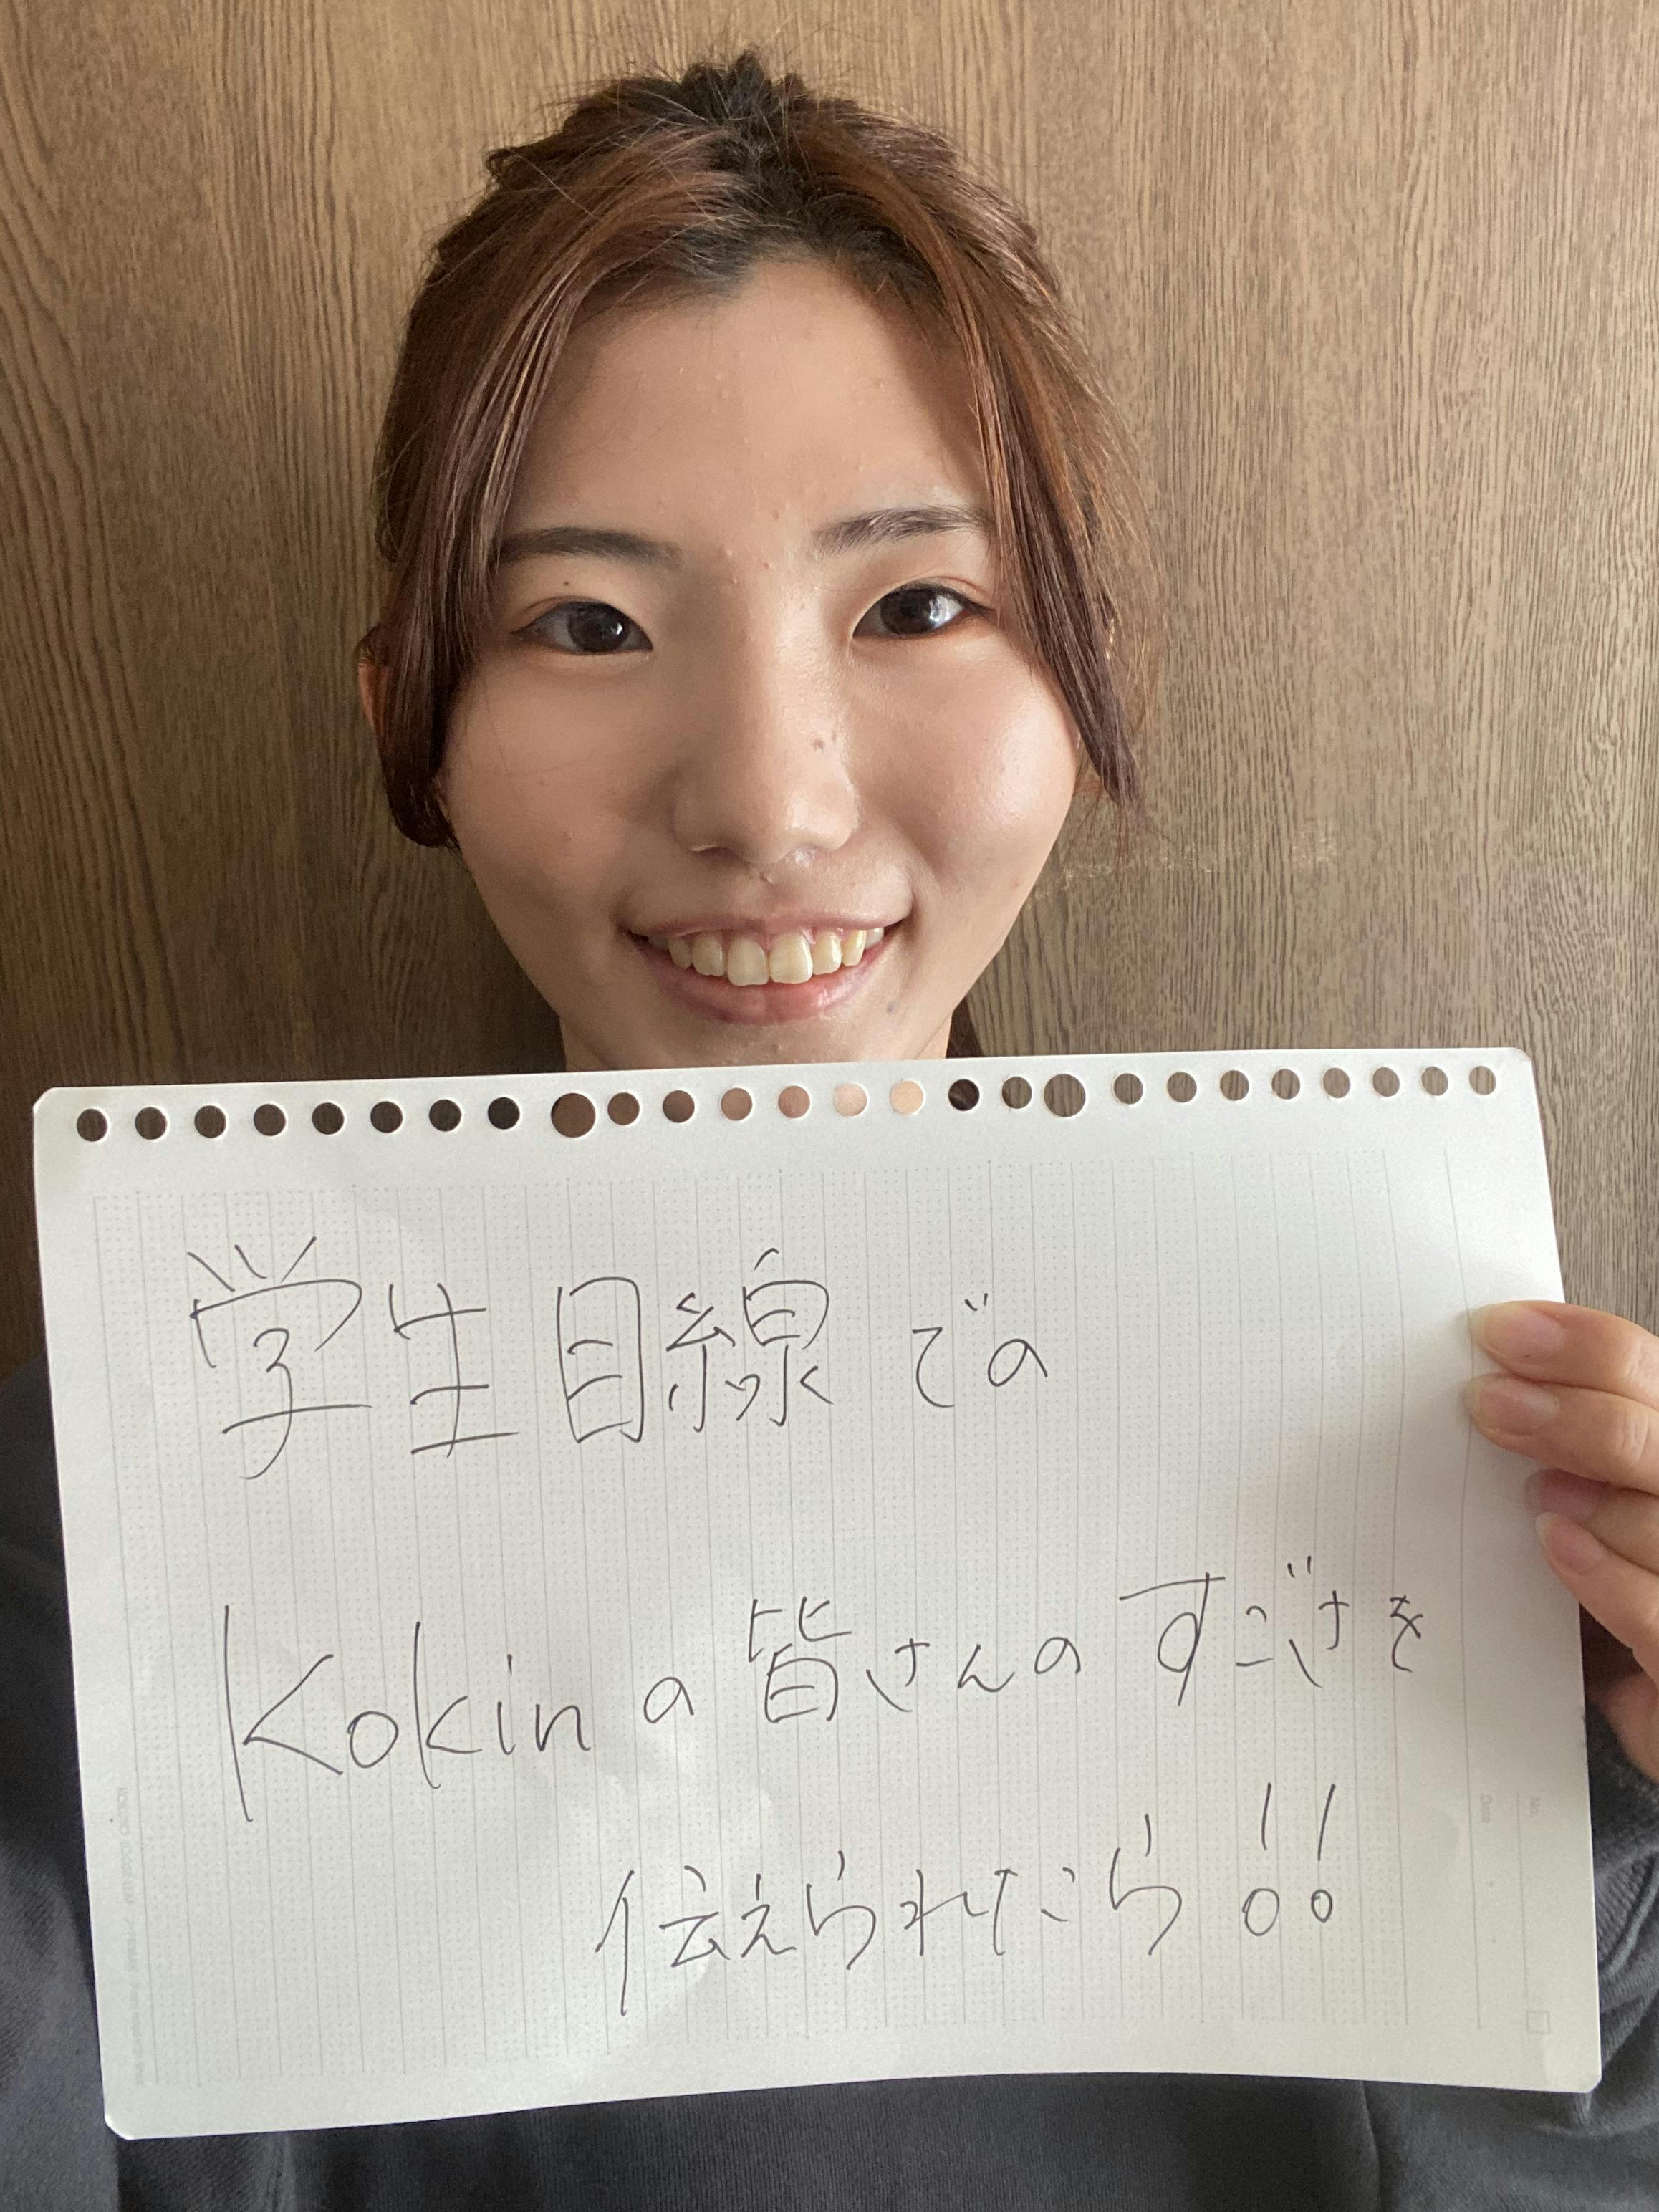 学生目線での
Kokinの皆さんのすごさを
伝えられたら!!